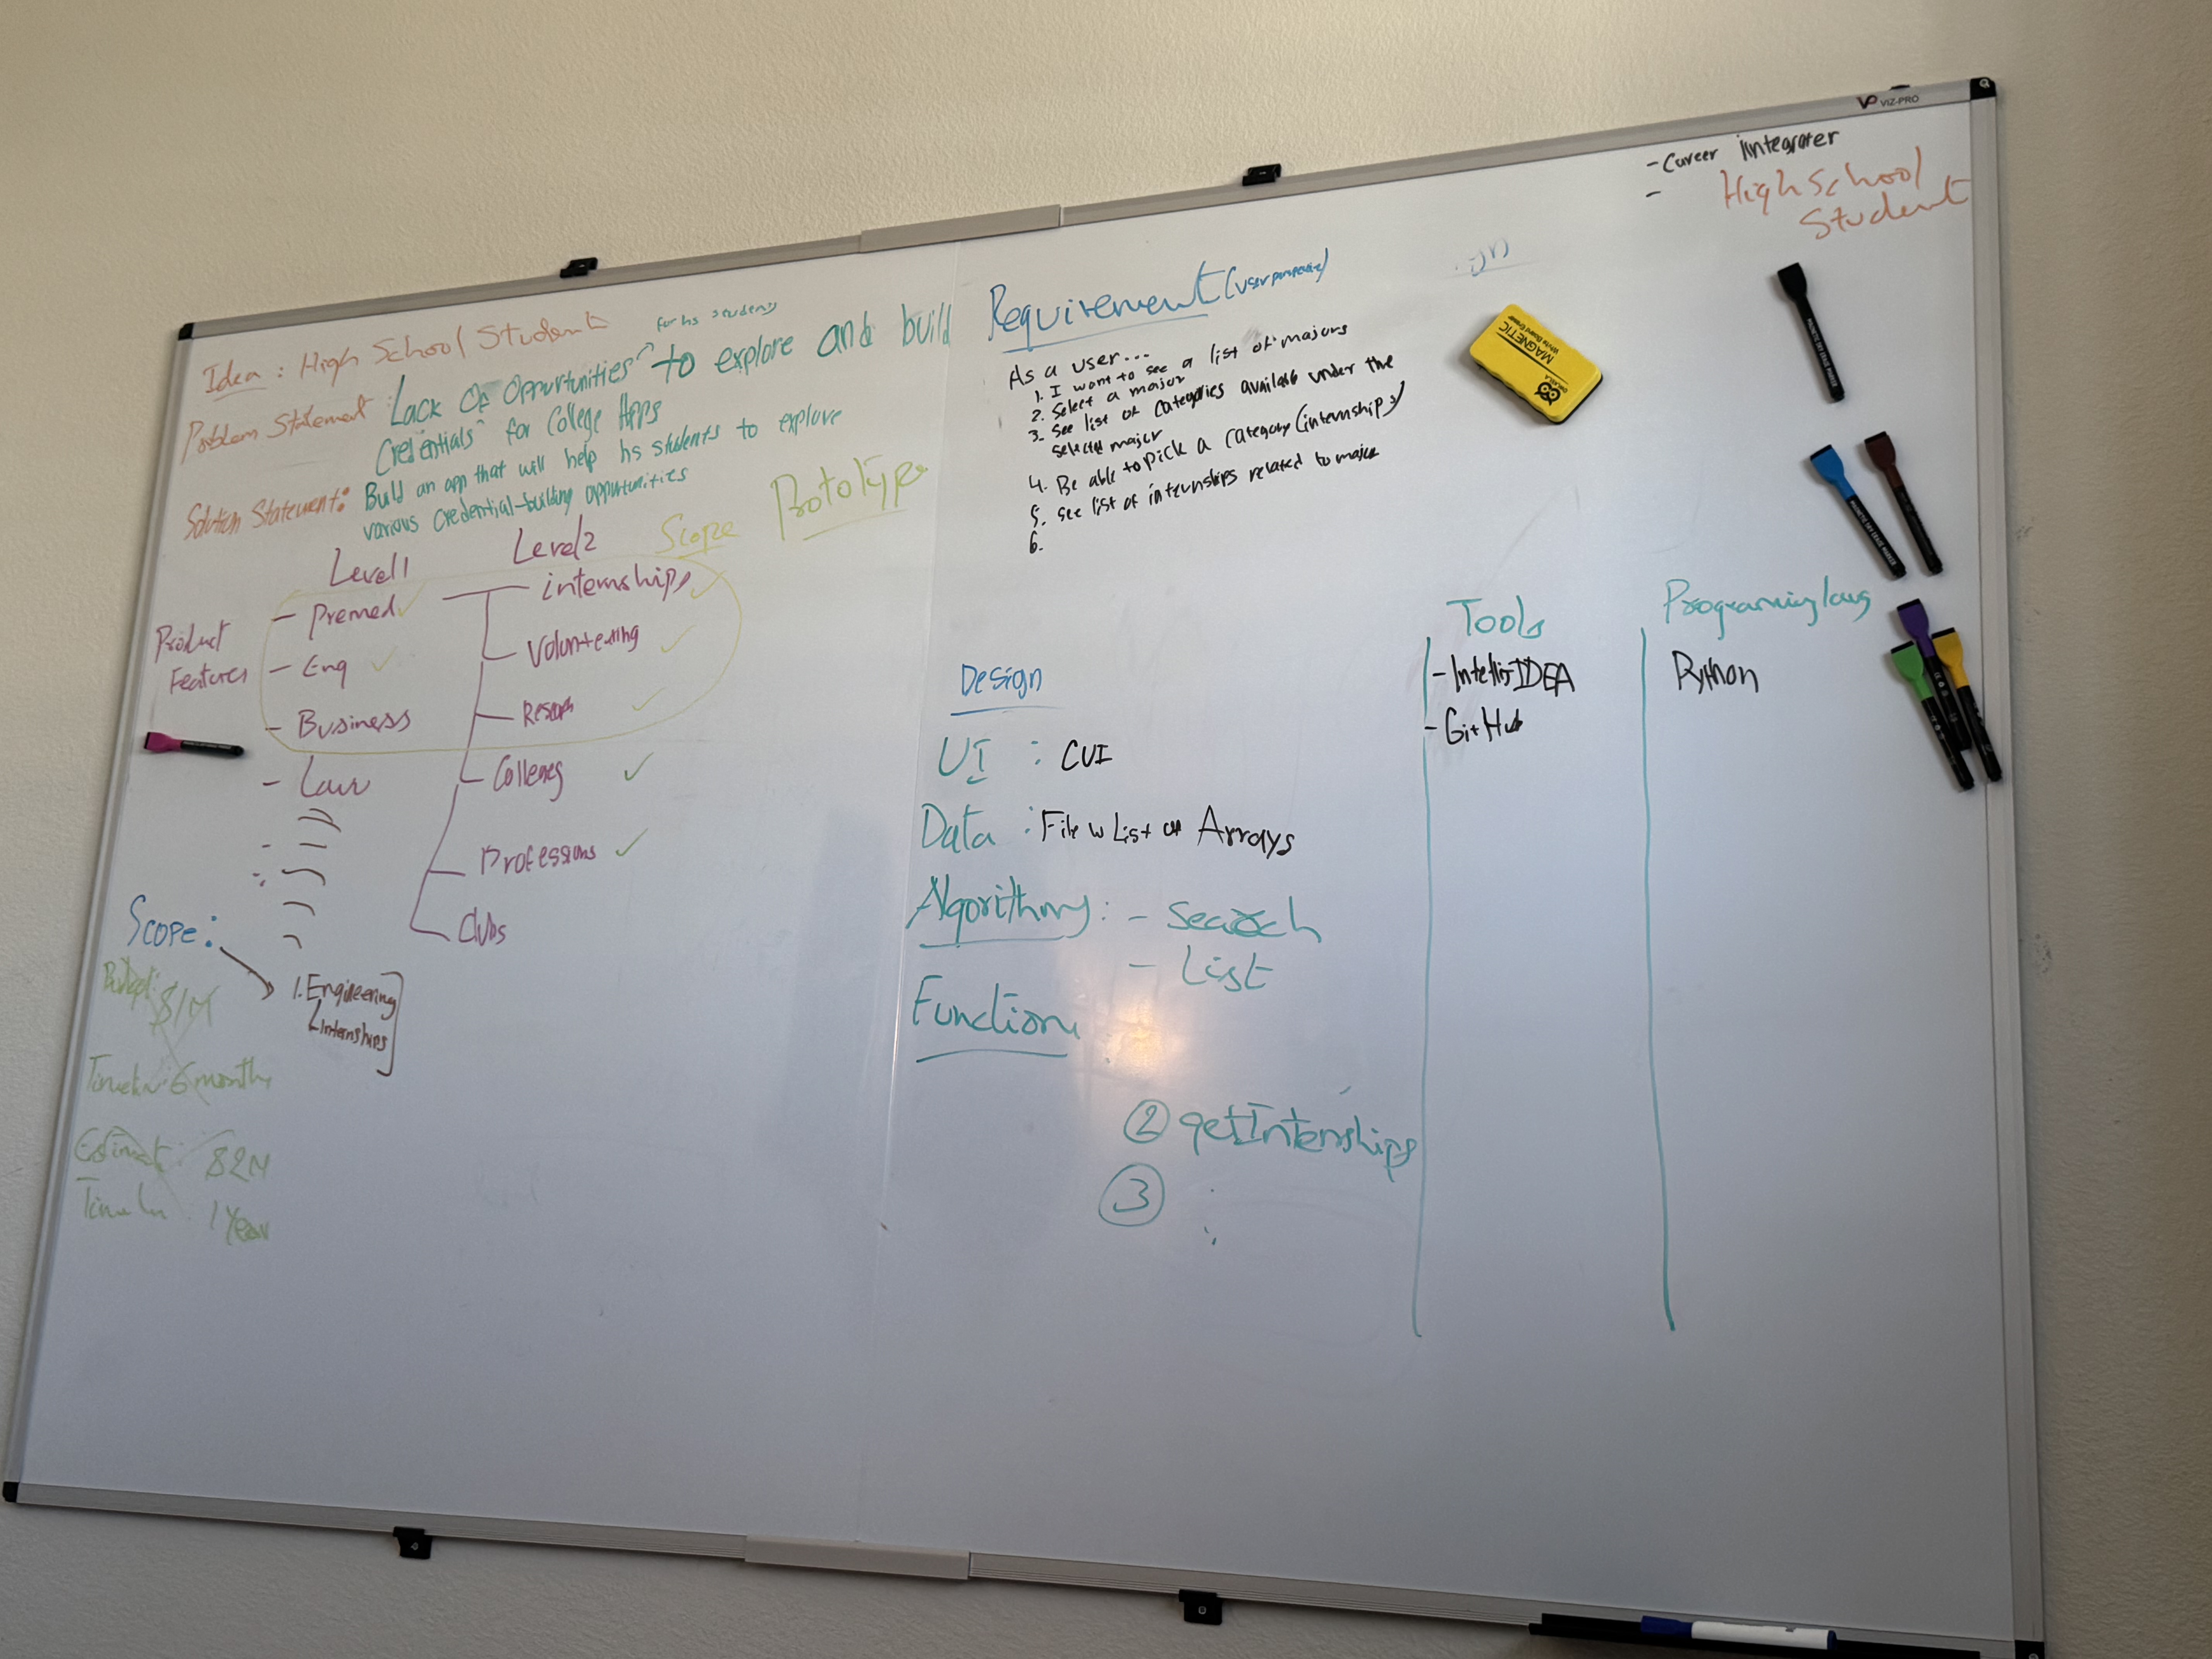 VP VIZ-PRO
- Career iintegrater
- High School
Student
MAGNETIC
White Board Eraser
Idea : High School Student
for hs students
Problem Statement : Lack of Oppurtunities to explore and build
Credentials for College Apps
Solution Statement: Build an app that will help hs students to explore
various credential-building oppurtunities
Scope Prototype
Level 1 Level 2
Product
Features
- Premed ✓
- Eng ✓
- Business
- Law
internships ✓
Volunteering ✓
Research ✓
Colleges ✓
Professions ✓
Clubs
Scope:
1. Engineering
Internships
Budget: $1M
6 months
Estimate: $2M
1 Year
Requirement (user perspective)
As a user...
1. I want to see a list of majors
2. Select a major
3. See list of categories available under the
selected major
4. Be able to pick a category (internships)
5. see list of internships related to major
6.
Design
UI : CUI
Data : File w List or Arrays
Algorithms: - Search
- List
Function
② getInternships
③
Tools
- Intellij IDEA
- GitHub
Programing lang
Python